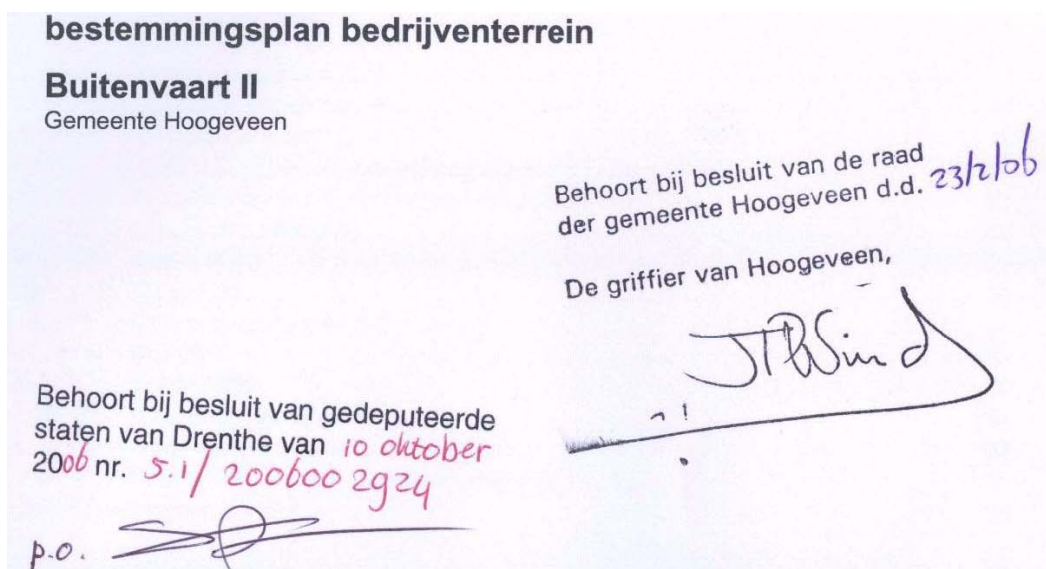 bestemmingsplan bedrijventerrein
Buitenvaart II
Gemeente Hoogeveen
Behoort bij besluit van de raad
der gemeente Hoogeveen d.d. 23/2/06
De griffier van Hoogeveen,
Behoort bij besluit van gedeputeerde
staten van Drenthe van 10 oktober
2006 nr. 5.1/2006002924
p.o.